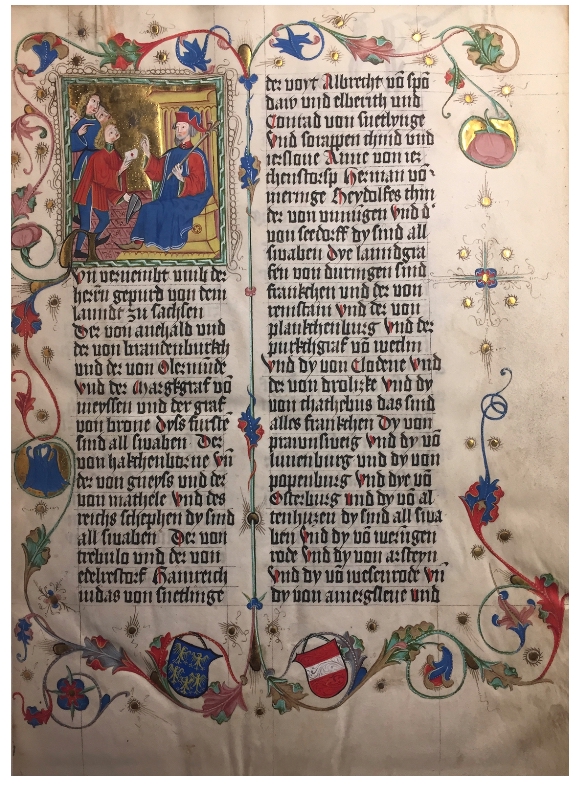 Vn vernembt vmb der
herrn gepurd von dem
lanndt zu sachsen
Der von anehald vnd
der von brandenburkch
vnd der von Olermünde
Vnd der Margkgraf võ
meyssen vnd der graf
von brone dyss fürstē
sind all swaben Der
von hakchenborne Vñ
der von gneyss vnd der
von mathele Vnd des
reichs schephen dy sind
all swaben Der von
trebulo vnd der von
edelrestorf Hainreich
iudas von snetlinge
der voyt Albrecht võ spō
daw vnd elberich vnd
Conrad von snetlynge
Vnd scrappen chind vnd
Anne von
Herman võ
meringe Heydolfes chin
der von vnnigen Vnd d'
von seedorff dy sind all
swaben Dye lanndgra
fen von duringen sind
frankchen vnd der von
reinstain Vnd der von
plankchenburg Vnd der
purkchgraf võ wetin
Vnd dy von Clodene Vnd
der von drolizke Vnd dy
von chathebus das sind
alles frankchen Dy von
prawnsweig Vnd dy võ
lunenburg vnd dy von
popenburg Vnd dye võ
Osterburg Vnd dy võ al
tenhuzen dy sind all swa
ben Vnd dy võ weringen
rode vnd dy von arsteyn
Vnd dy võ wesenrode Vñ
dy von amerslene vnd